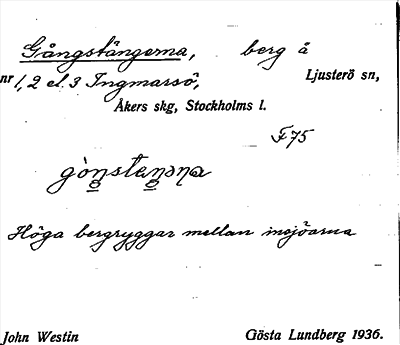 Gångstängerna, berg å
nr 1, 2 el. 3 Ingmarsö, Ljusterö sn,
Åkers skg, Stockholms l.
F 75
Höga bergryggar mellan mojöarna
John Westin Gösta Lundberg 1936.